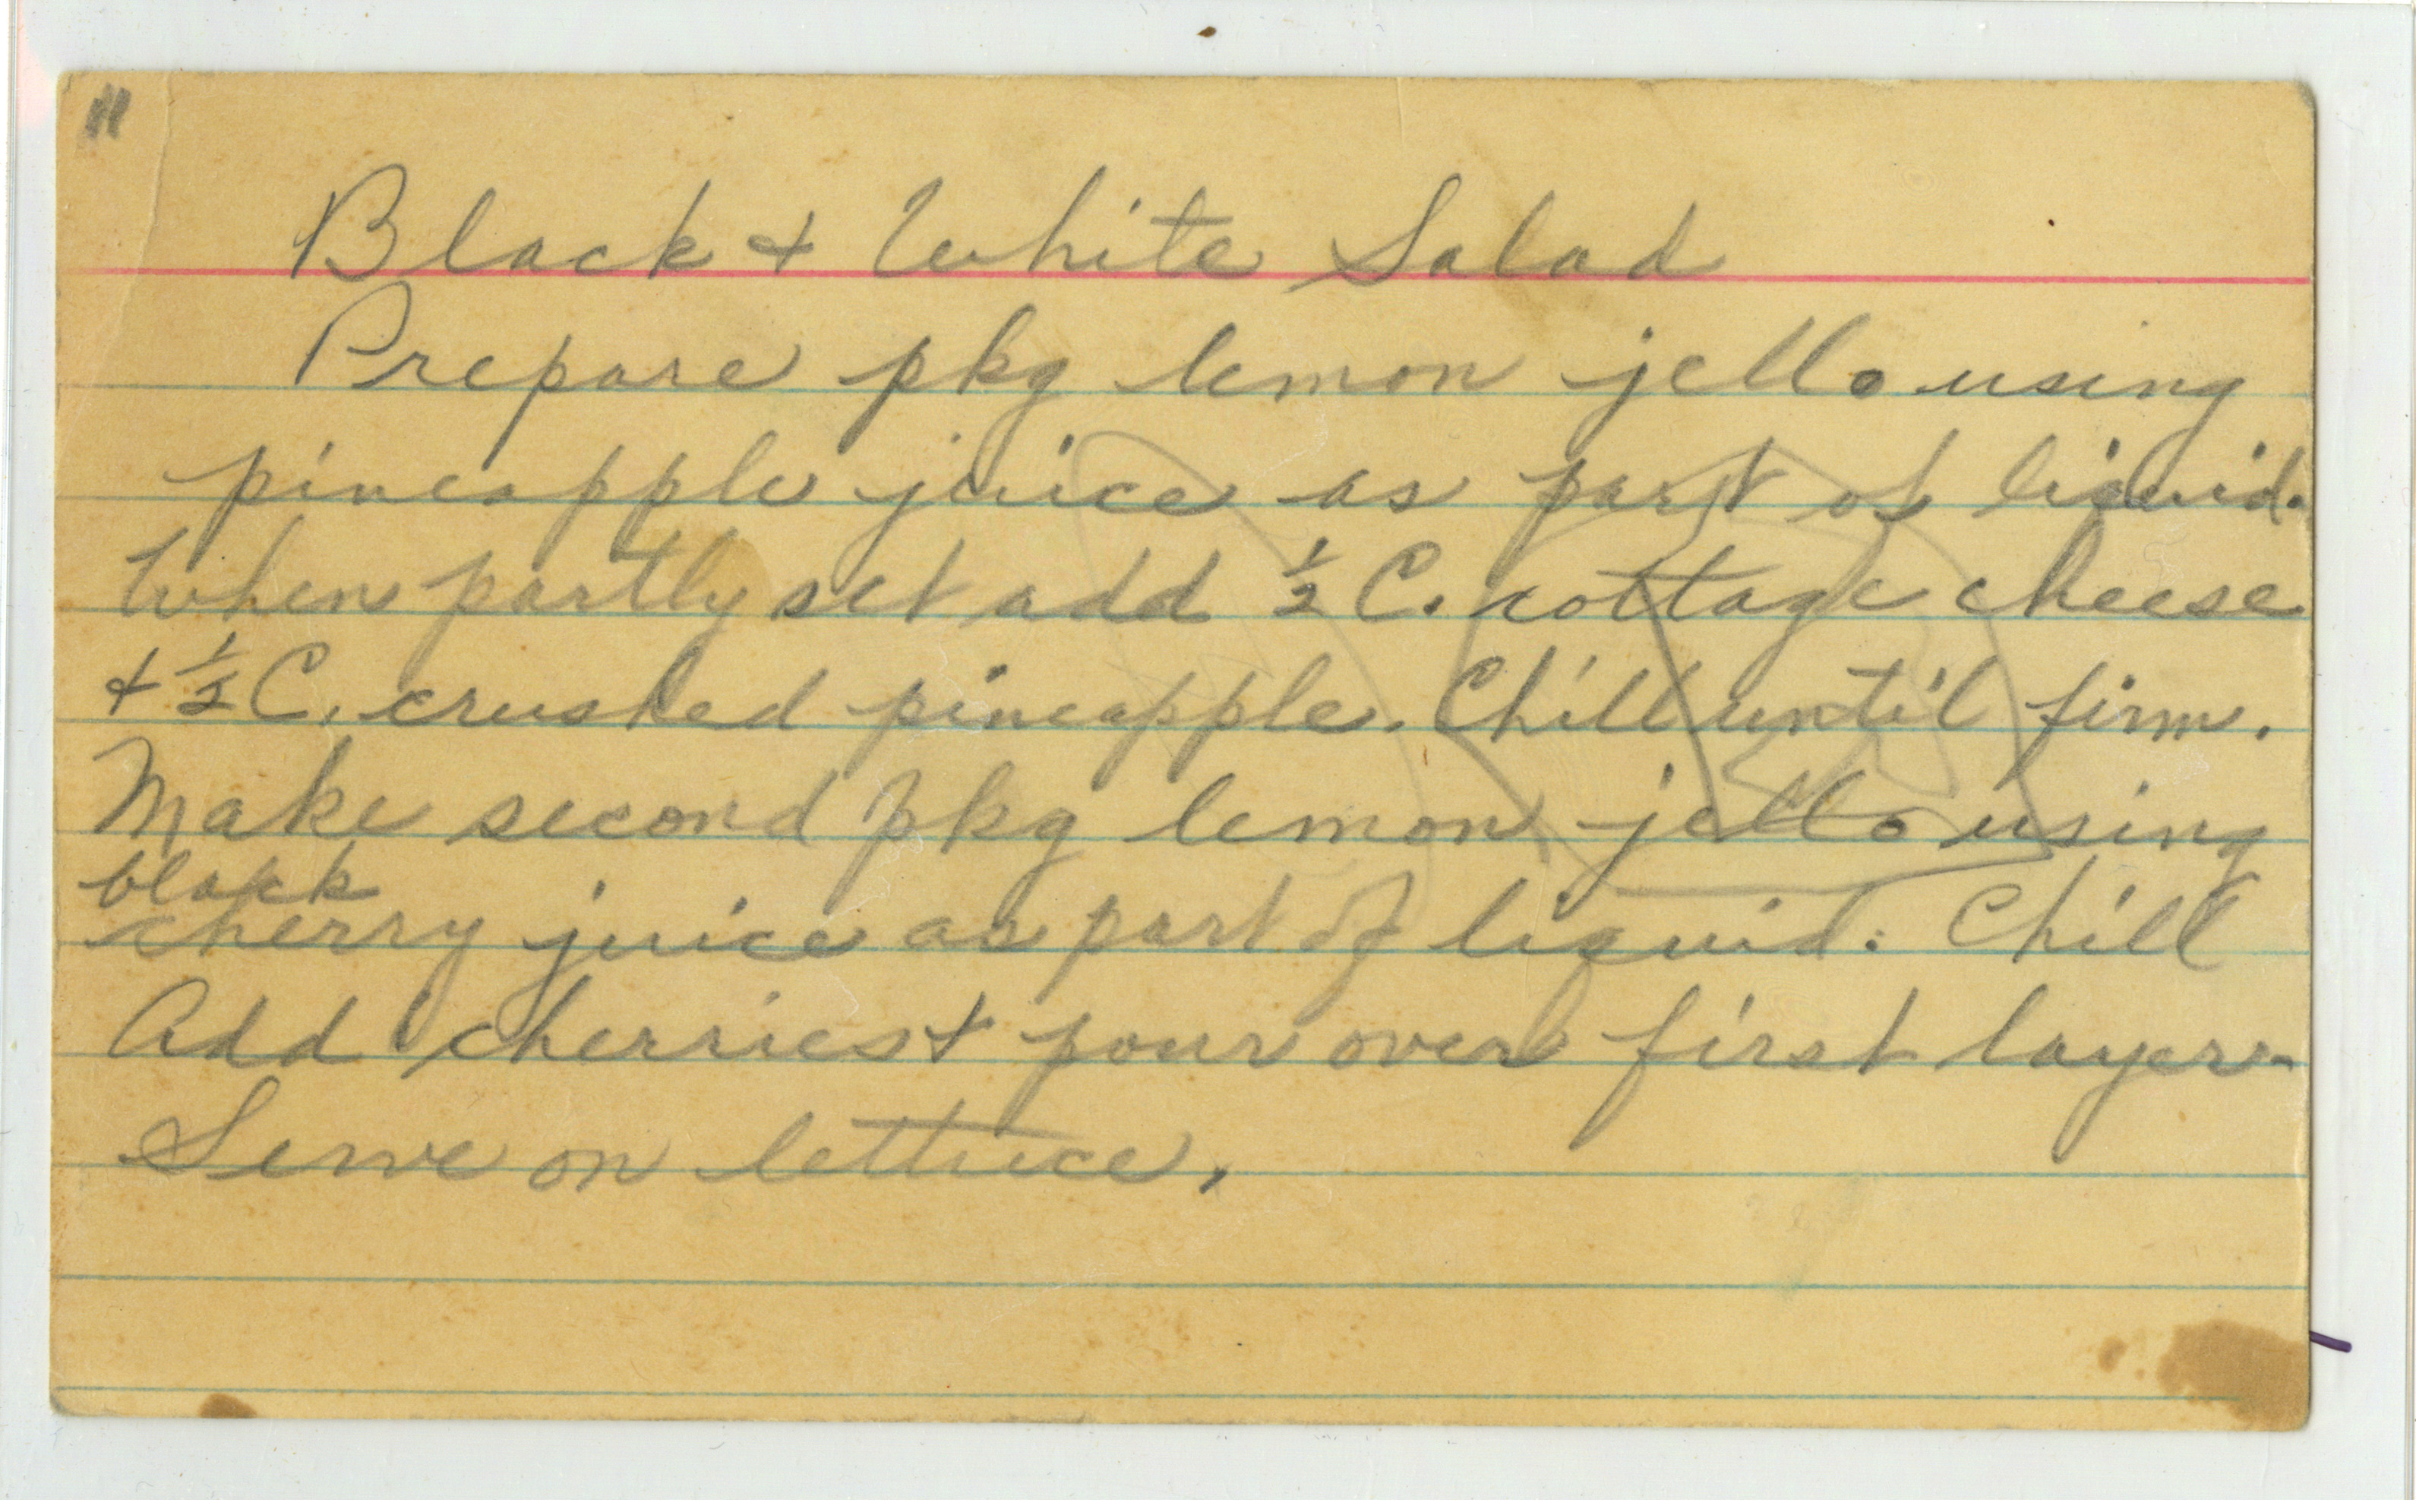 11
Black & White Salad
Prepare pkg lemon jello using
pineapple juice as part of liquid.
When partly set add 1/2 C. cottage cheese
& 1/2 C. crushed pineapple. Chill until firm.
Make second pkg lemon jello using
black
cherry juice as part of liquid. Chill
Add cherries & pour over first layer.
Serve on lettuce.